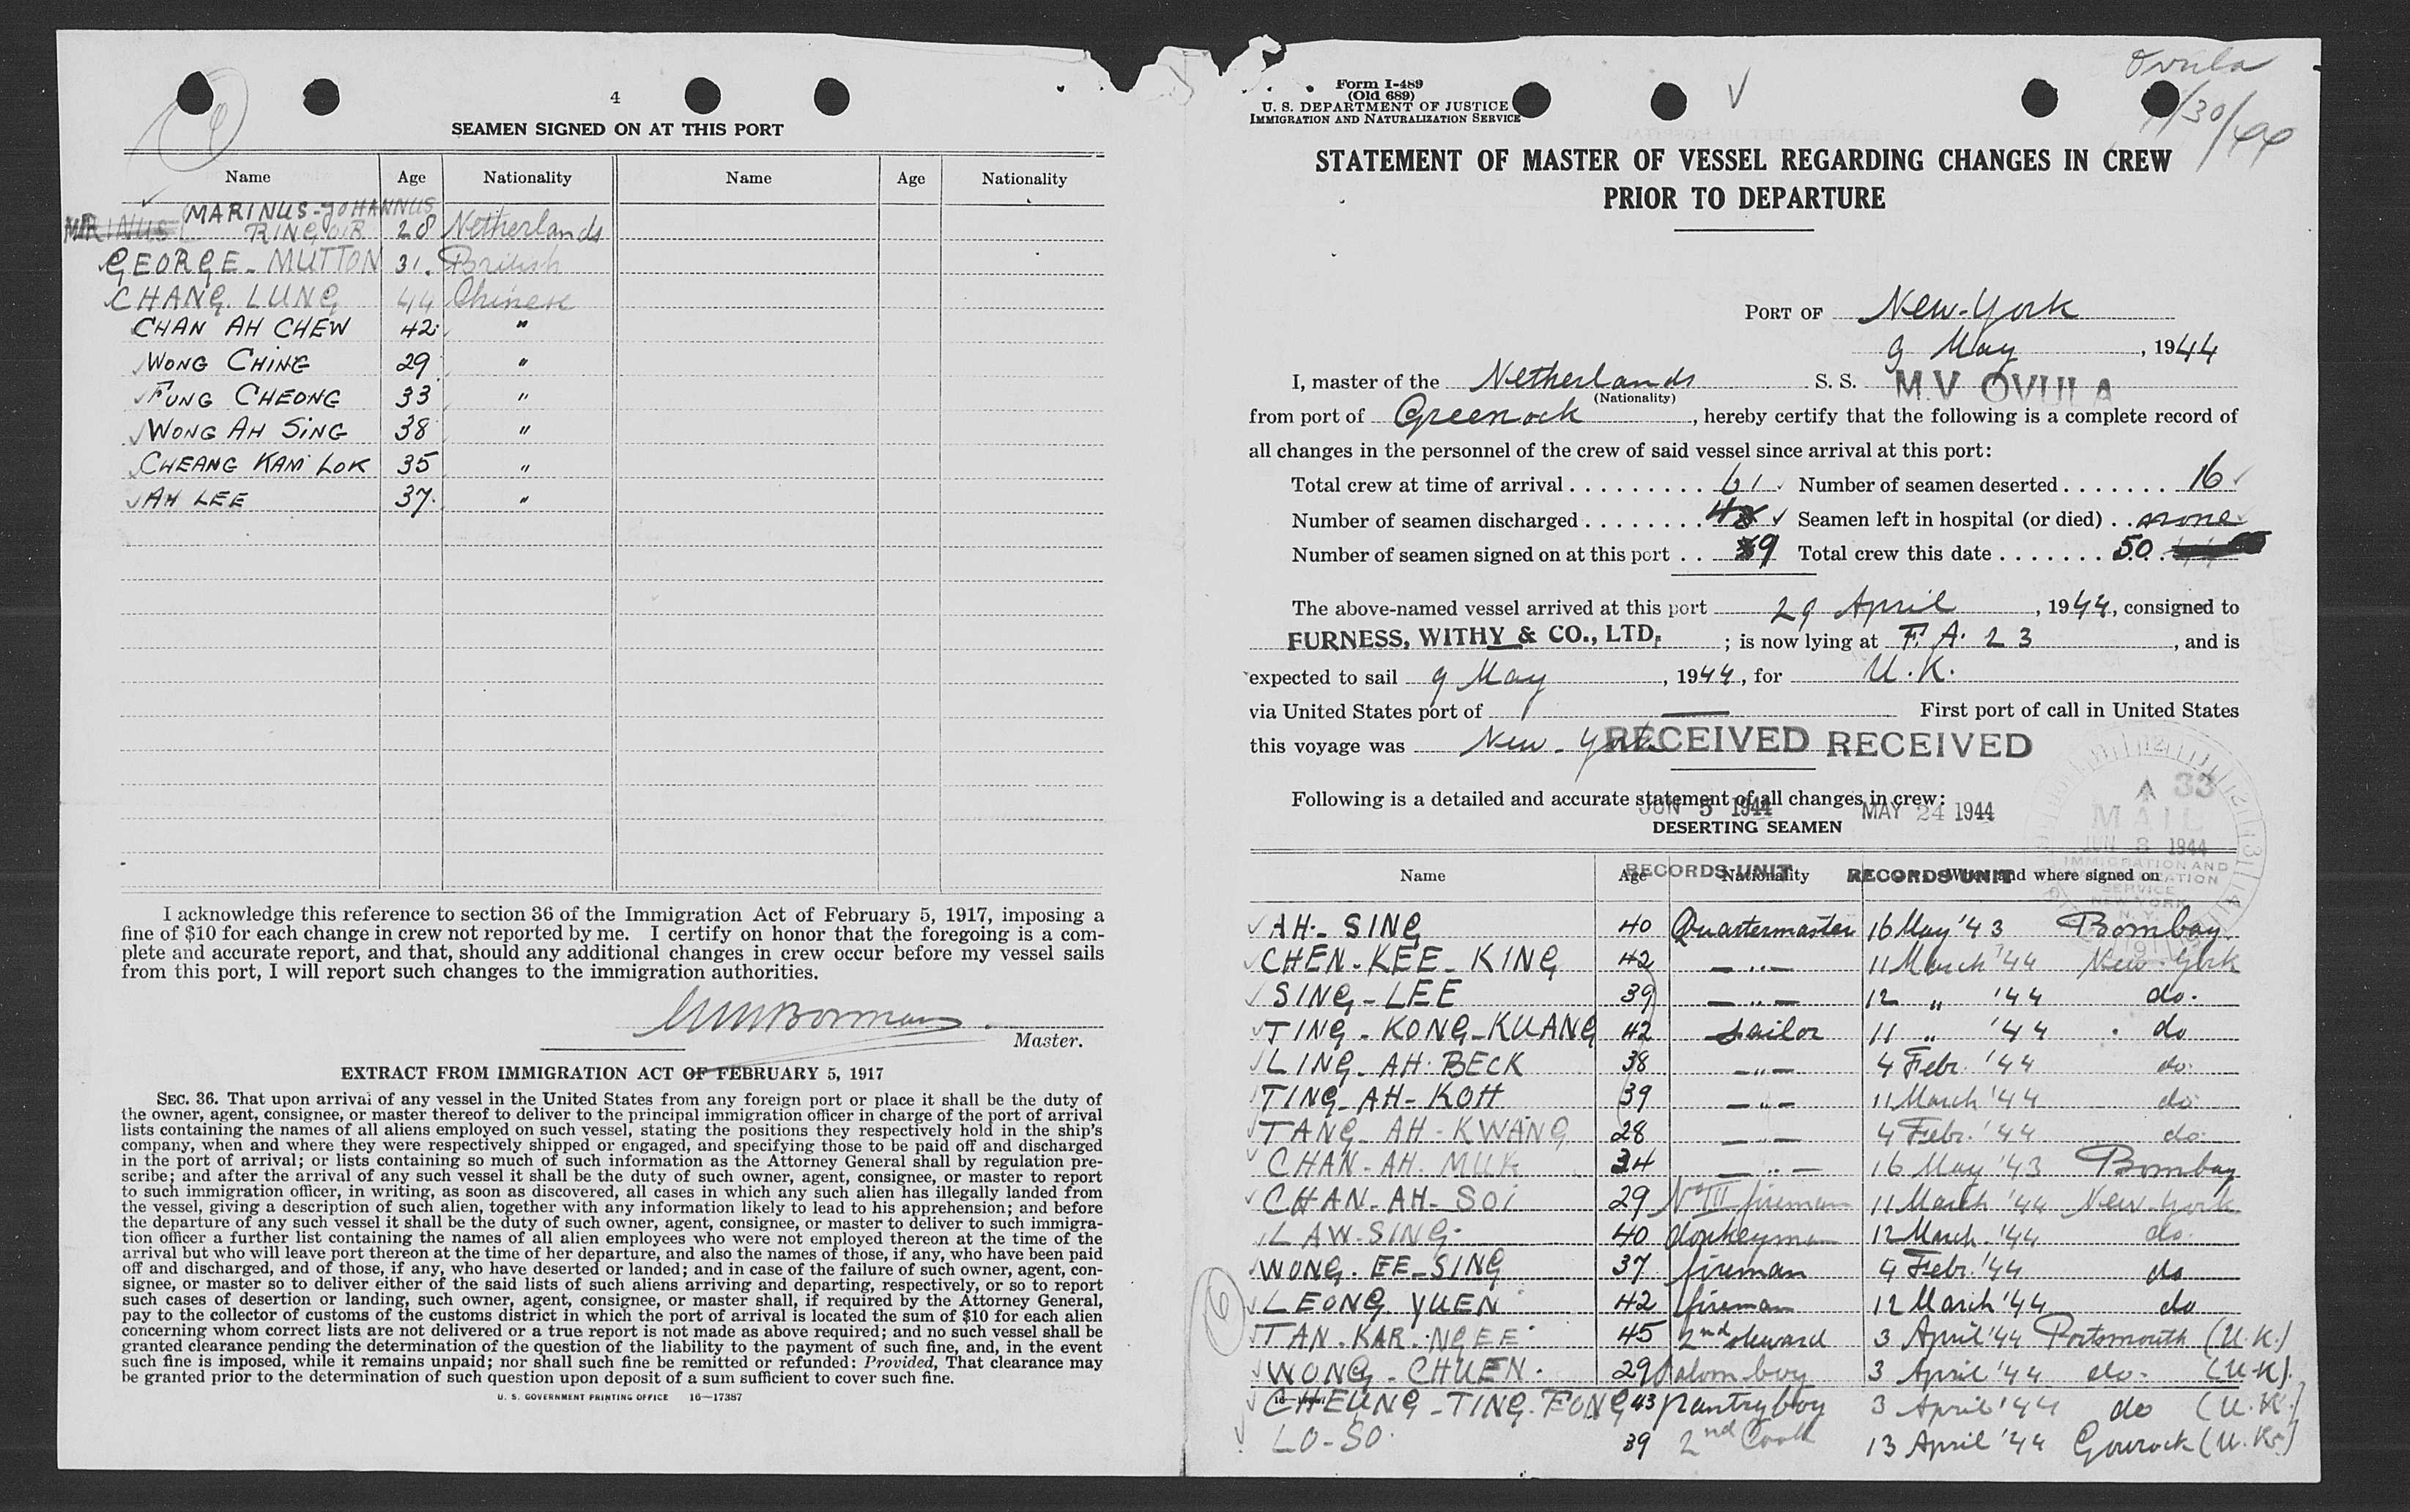 4
SEAMEN SIGNED ON AT THIS PORT
Name Age Nationality Name Age Nationality
MARINUS-JOHANNUS
RINGOIR 28 Netherlands
GEORGE-MUTTON 31. British
CHANG LUNG 44 Chinese
CHAN AH CHEW 42 "
WONG CHING 29 "
FUNG CHEONG 33 "
WONG AH SING 38 "
CHEANG KAM LOK 35 "
AH LEE 37. "
I acknowledge this reference to section 36 of the Immigration Act of February 5, 1917, imposing a
fine of $10 for each change in crew not reported by me. I certify on honor that the foregoing is a com-
plete and accurate report, and that, should any additional changes in crew occur before my vessel sails
from this port, I will report such changes to the immigration authorities.
Master.
EXTRACT FROM IMMIGRATION ACT OF FEBRUARY 5, 1917
SEC. 36. That upon arrival of any vessel in the United States from any foreign port or place it shall be the duty of
the owner, agent, consignee, or master thereof to deliver to the principal immigration officer in charge of the port of arrival
lists containing the names of all aliens employed on such vessel, stating the positions they respectively hold in the ship's
company, when and where they were respectively shipped or engaged, and specifying those to be paid off and discharged
in the port of arrival; or lists containing so much of such information as the Attorney General shall by regulation pre-
scribe; and after the arrival of any such vessel it shall be the duty of such owner, agent, consignee, or master to report
to such immigration officer, in writing, as soon as discovered, all cases in which any such alien has illegally landed from
the vessel, giving a description of such alien, together with any information likely to lead to his apprehension; and before
the departure of any such vessel it shall be the duty of such owner, agent, consignee, or master to deliver to such immigra-
tion officer a further list containing the names of all alien employees who were not employed thereon at the time of the
arrival but who will leave port thereon at the time of her departure, and also the names of those, if any, who have been paid
off and discharged, and of those, if any, who have deserted or landed; and in case of the failure of such owner, agent, con-
signee, or master so to deliver either of the said lists of such aliens arriving and departing, respectively, or so to report
such cases of desertion or landing, such owner, agent, consignee, or master shall, if required by the Attorney General,
pay to the collector of customs of the customs district in which the port of arrival is located the sum of $10 for each alien
concerning whom correct lists are not delivered or a true report is not made as above required; and no such vessel shall be
granted clearance pending the determination of the question of the liability to the payment of such fine, and, in the event
such fine is imposed, while it remains unpaid; nor shall such fine be remitted or refunded: Provided, That clearance may
be granted prior to the determination of such question upon deposit of a sum sufficient to cover such fine.
U. S. GOVERNMENT PRINTING OFFICE 16—17387
Ovula
/30/44
Form I-489
(Old 689)
U. S. DEPARTMENT OF JUSTICE
IMMIGRATION AND NATURALIZATION SERVICE
STATEMENT OF MASTER OF VESSEL REGARDING CHANGES IN CREW
PRIOR TO DEPARTURE
PORT OF New-York
9 May, 1944
I, master of the Netherlands S. S. M.V OVULA
(Nationality)
from port of Greenock, hereby certify that the following is a complete record of
all changes in the personnel of the crew of said vessel since arrival at this port:
Total crew at time of arrival 61 Number of seamen deserted 16
Number of seamen discharged 4 Seamen left in hospital (or died) none
Number of seamen signed on at this port 9 Total crew this date 50
The above-named vessel arrived at this port 29 April, 1944, consigned to
FURNESS, WITHY & CO., LTD.; is now lying at F. A. 23, and is
expected to sail 9 May, 1944, for U.K.
via United States port of — First port of call in United States
this voyage was New-York
RECEIVED RECEIVED
Following is a detailed and accurate statement of all changes in crew:
JUN 5 1944 MAY 24 1944
DESERTING SEAMEN
RECORDS UNIT RECORDS UNIT
A 33
MAIL
JUN 8 1944
IMMIGRATION AND
NATURALIZATION
SERVICE
NEW YORK
N. Y.
Name Age Nationality When and where signed on
AH- SING 40 Quartermaster 16 May '43 Bombay
CHEN-KEE-KING 42 —"— 11 March '44 New-York
SING-LEE 39 —"— 12 " '44 do.
TING-KONG-KUANG 42 sailor 11 " '44 do
LING-AH-BECK 38 —"— 4 Febr. '44 do.
TING-AH-KOH 39 —"— 11 March '44 do
TANG-AH-KWANG 28 —"— 4 Febr. '44 do.
CHAN-AH-MUK 34 —"— 16 May '43 Bombay
CHAN-AH-SOI 29 No III fireman 11 March '44 New-York
LAW-SING. 40 donkeyman 12 March '44 do.
WONG-EE-SING 37 fireman 4 Febr. '44 do
LEONG YUEN 42 fireman 12 March '44 do
TAN-KAR-NGEE 45 2nd steward 3 April '44 Portsmouth (U.K.)
WONG-CHUEN. 29 salom boy 3 April '44 do. (U.K).
CHEUNG-TING-FONG 43 pantryboy 3 April '44 do (U.K.)
LO-SO. 39 2nd Cook 13 April '44 Gourock (U.K.)